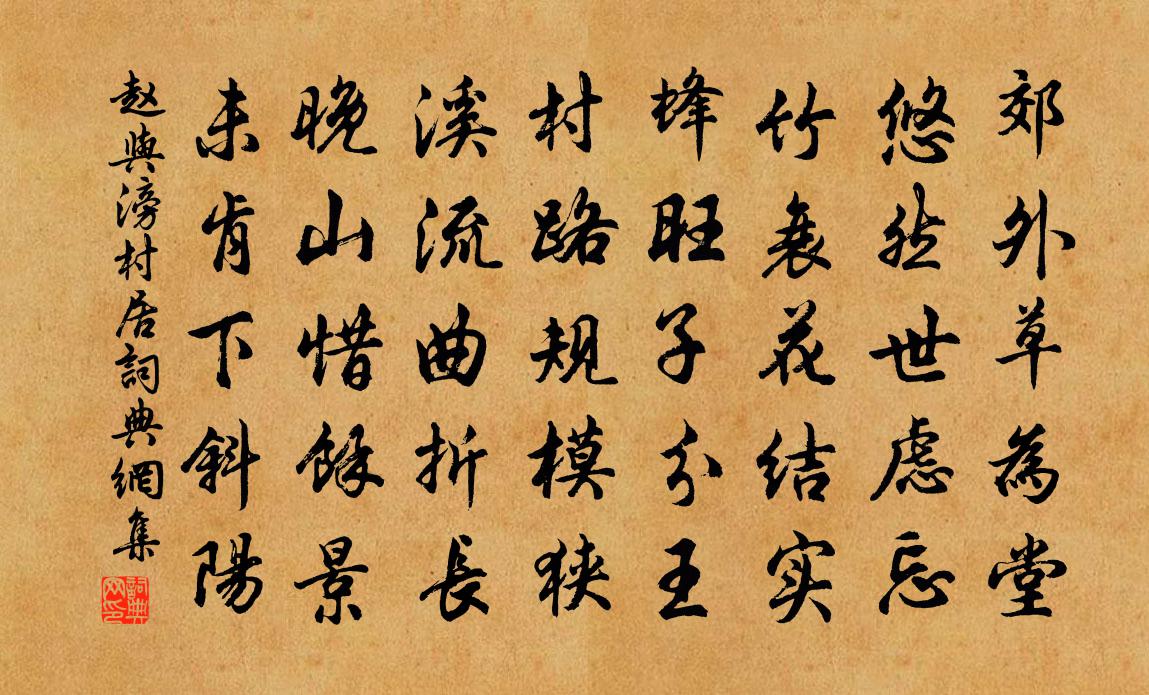 郊外草為堂
悠然世慮忘
竹衰花结实
蜂旺子分王
村路规模狭
溪流曲折長
晚山惜餘景
未肯下斜陽
赵與滂村居詞典網集
詞典网印